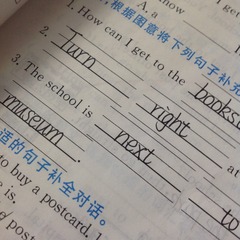 now
A. a
t gets
,根据图意将下列句子补充
1. How can I get to the books
2. Turn right at
3. The school is next to
museum.
话的句子补全对话。
to buy a postcard. I
e is.
post